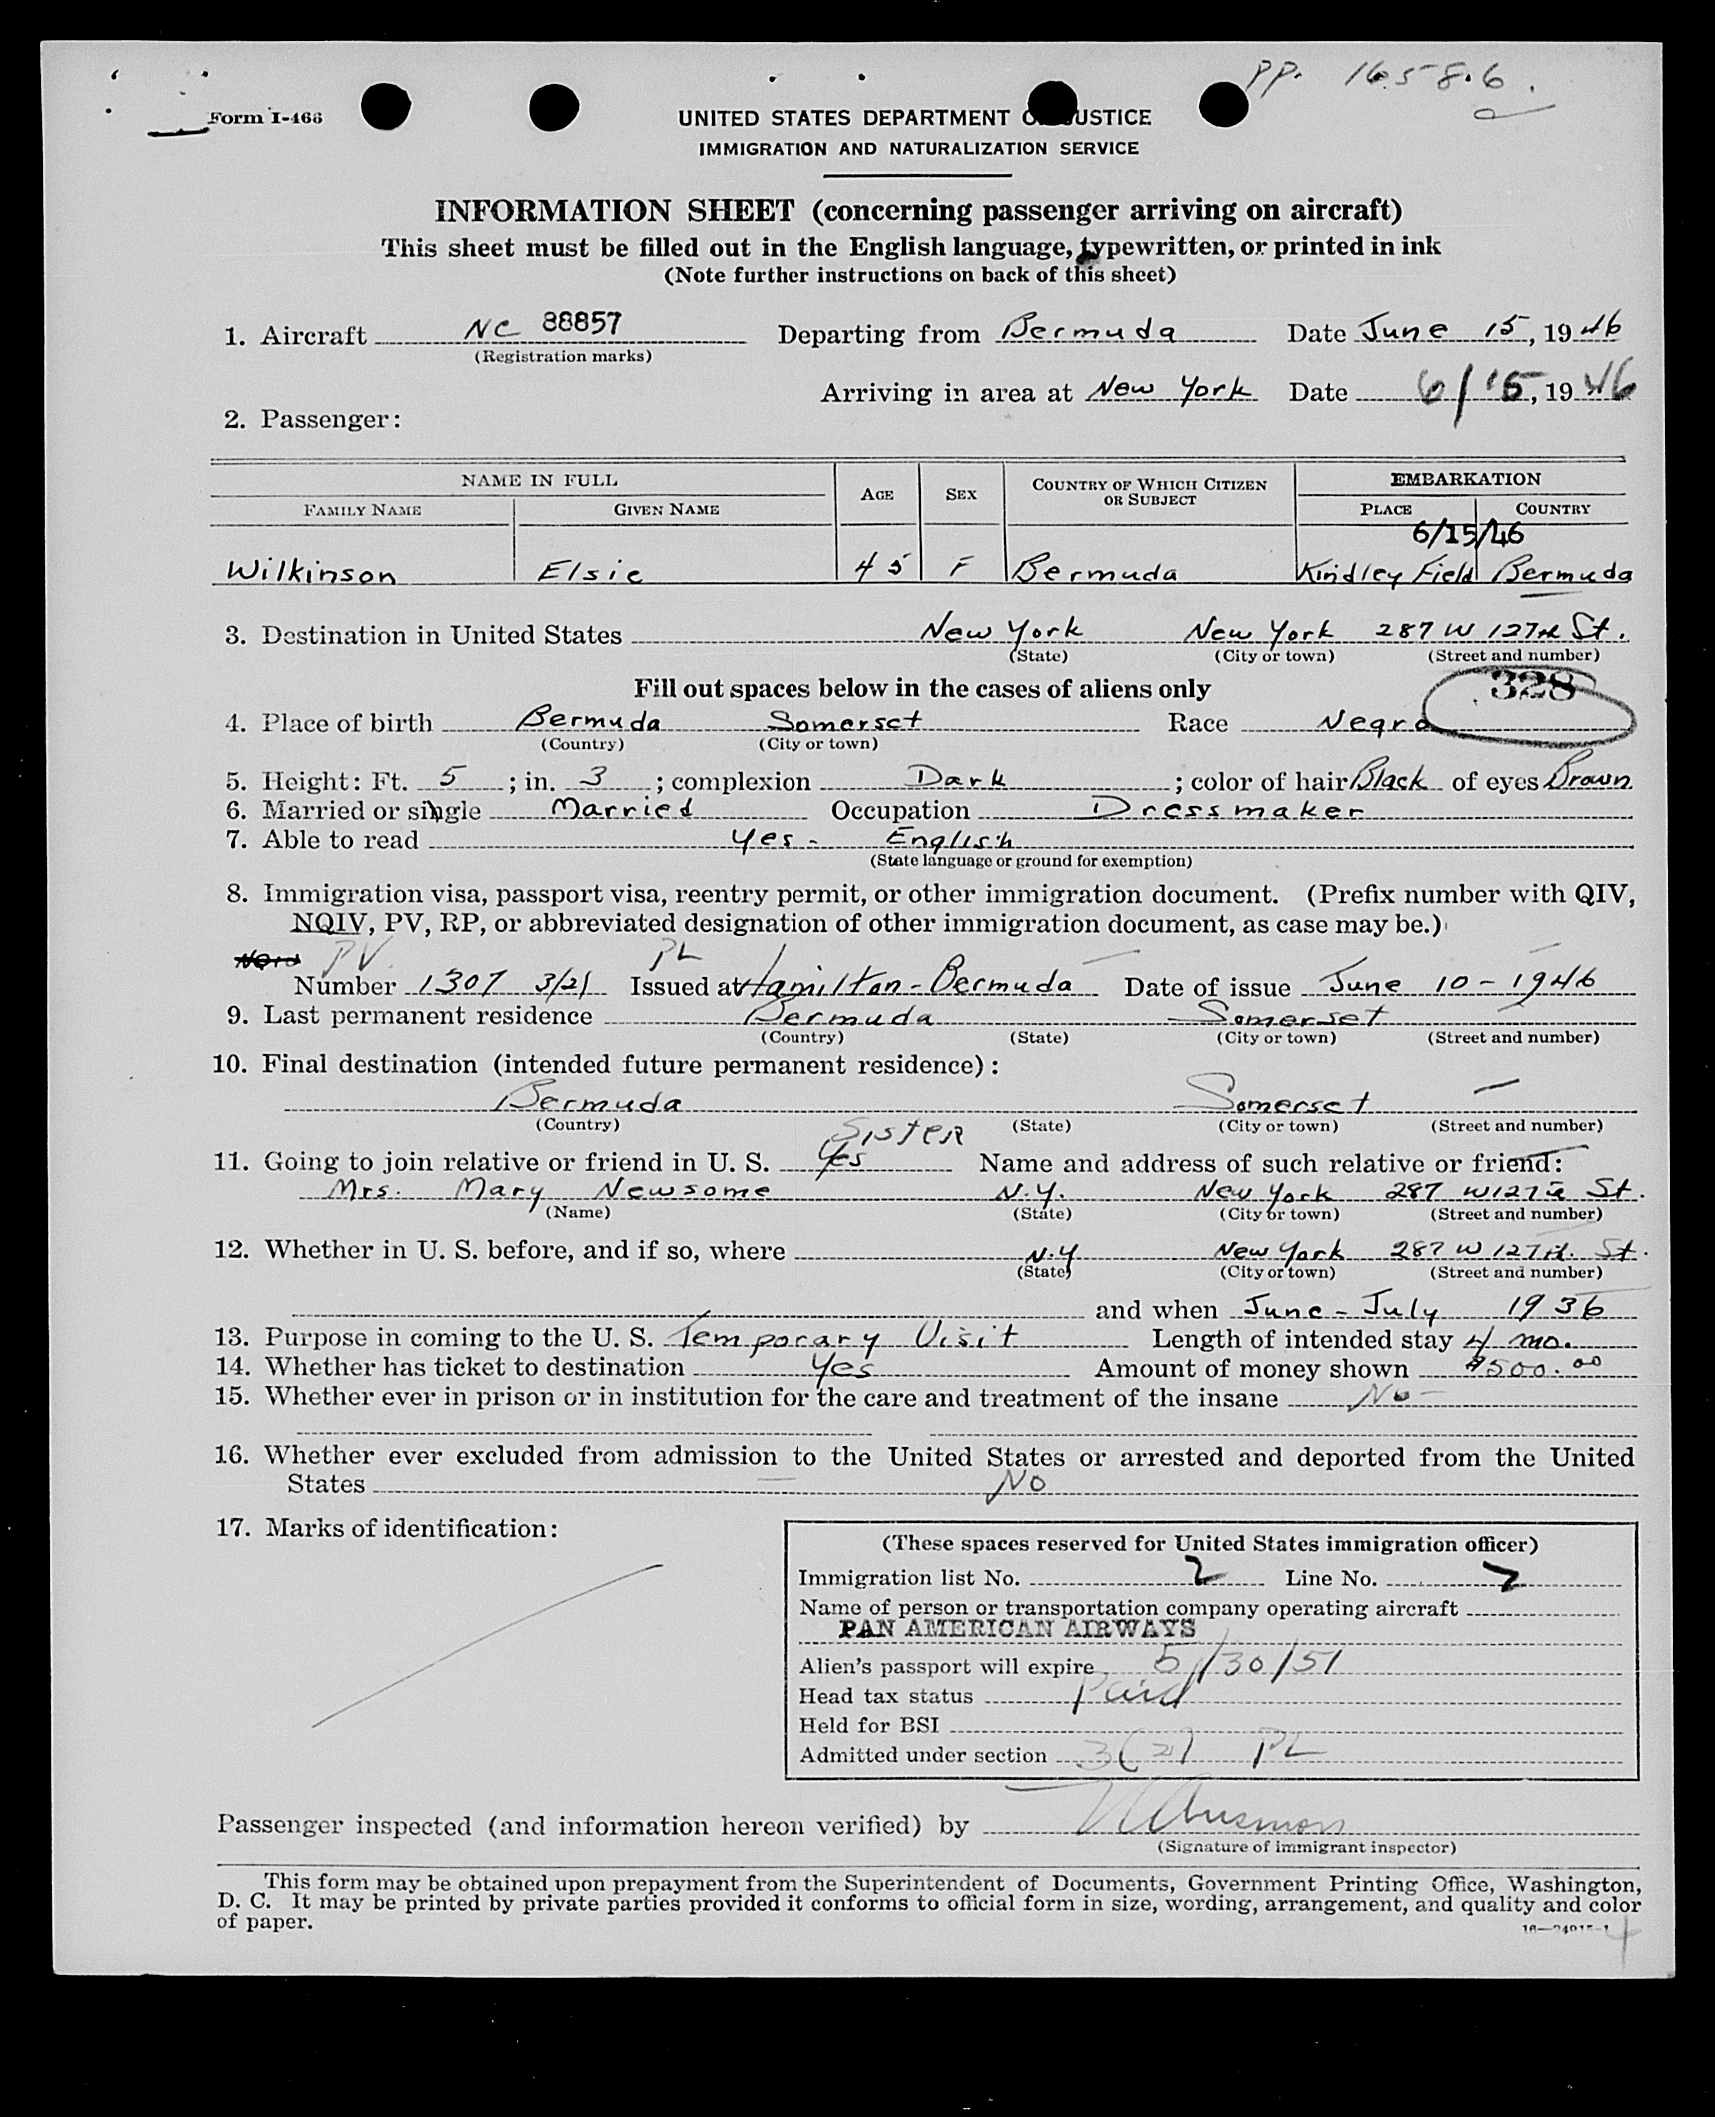 PP. 16586.
Form I-466
UNITED STATES DEPARTMENT OF JUSTICE
IMMIGRATION AND NATURALIZATION SERVICE
INFORMATION SHEET (concerning passenger arriving on aircraft)
This sheet must be filled out in the English language, typewritten, or printed in ink
(Note further instructions on back of this sheet)
1. Aircraft NC 88857 Departing from Bermuda Date June 15, 1946
(Registration marks)
Arriving in area at New York Date 6/15, 1946
2. Passenger:
NAME IN FULL AGE SEX COUNTRY OF WHICH CITIZEN OR SUBJECT EMBARKATION
FAMILY NAME GIVEN NAME PLACE COUNTRY
6/15/46
Wilkinson Elsie 45 F Bermuda Kindley Field Bermuda
3. Destination in United States New York New York 287 W 127th St.
(State) (City or town) (Street and number)
Fill out spaces below in the cases of aliens only 328
4. Place of birth Bermuda Somerset Race Negro
(Country) (City or town)
5. Height: Ft. 5; in. 3; complexion Dark; color of hair Black of eyes Brown
6. Married or single Married Occupation Dressmaker
7. Able to read Yes - English
(State language or ground for exemption)
8. Immigration visa, passport visa, reentry permit, or other immigration document. (Prefix number with QIV,
NQIV, PV, RP, or abbreviated designation of other immigration document, as case may be.)
PV PL
Number 1307 3/2/ Issued at Hamilton - Bermuda Date of issue June 10 - 1946
9. Last permanent residence Bermuda Somerset
(Country) (State) (City or town) (Street and number)
10. Final destination (intended future permanent residence):
Bermuda Somerset —
(Country) (State) (City or town) (Street and number)
Sister
11. Going to join relative or friend in U. S. Yes Name and address of such relative or friend:
Mrs. Mary Newsome N.Y. New York 287 W 127th St.
(Name) (State) (City or town) (Street and number)
12. Whether in U. S. before, and if so, where N.Y New York 287 W 127th. St.
(State) (City or town) (Street and number)
and when June - July 1936
13. Purpose in coming to the U. S. Temporary Visit Length of intended stay 4 mo.
14. Whether has ticket to destination Yes Amount of money shown $500.00
15. Whether ever in prison or in institution for the care and treatment of the insane No -
16. Whether ever excluded from admission to the United States or arrested and deported from the United
States No
17. Marks of identification:
(These spaces reserved for United States immigration officer)
Immigration list No. 2 Line No. 7
Name of person or transportation company operating aircraft
PAN AMERICAN AIRWAYS
Alien's passport will expire 5/30/51
Head tax status Paid
Held for BSI
Admitted under section 3(2) PL
Passenger inspected (and information hereon verified) by
(Signature of immigrant inspector)
This form may be obtained upon prepayment from the Superintendent of Documents, Government Printing Office, Washington,
D. C. It may be printed by private parties provided it conforms to official form in size, wording, arrangement, and quality and color
of paper.
4